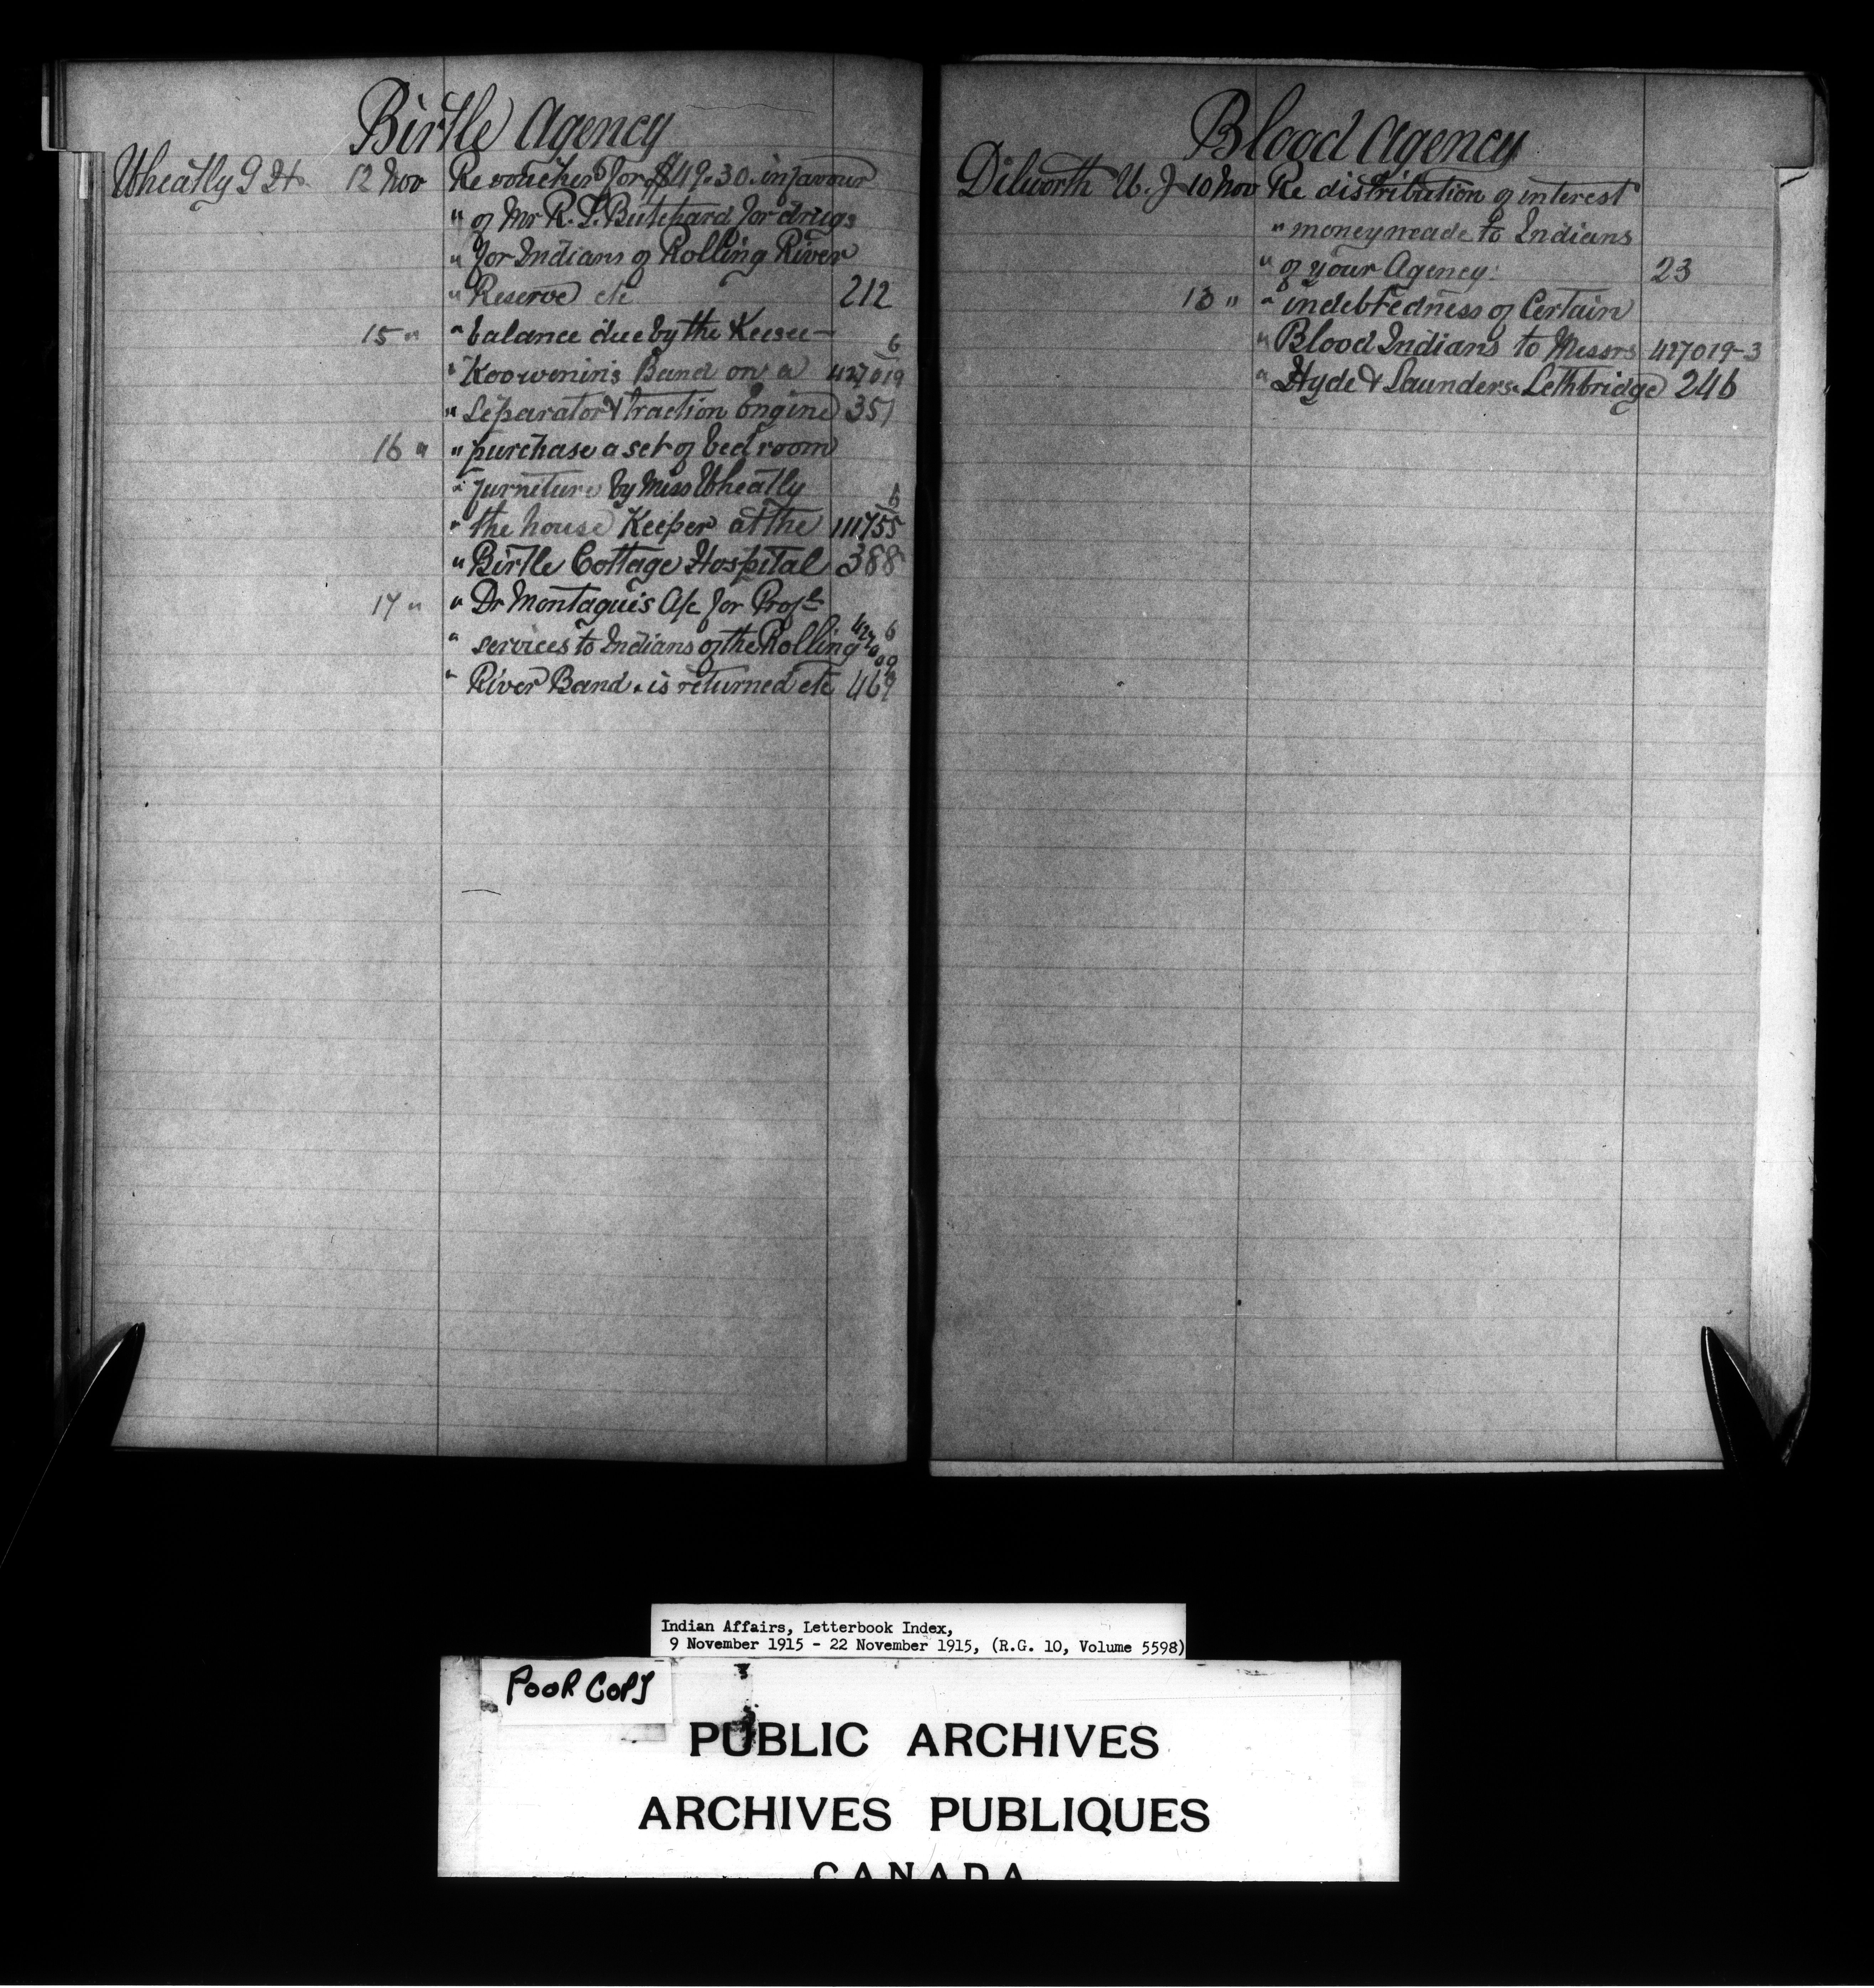 Birtle Agency
Wheatly G H. 12 Nov Re voucher for $49.30. in favour
" of Mr R. L. Butchard for drugs
" for Indians of Rolling River
" Reserve etc 212
15 " " balance due by the Keesee- 6
" Koowenin's Band on a 427019
" Separator & traction Engine 351
16 " " purchase a set of bed room
" furniture by Miss Wheatly 6
" the house Keeper at the 111755
" Birtle Cottage Hospital 388
17 " " Dr Montague's A/c for Profl
" services to Indians of the Rolling 427009 6
" River Band. is returned etc 469
Blood Agency
Dilworth W. J 10 Nov Re distribution of interest
" money made to Indians
" of your Agency. 23
13 " " indebtedness of Certain
" Blood Indians to Messrs 427019-3
" Hyde & Saunders. Lethbridge 246
Indian Affairs, Letterbook Index,
9 November 1915 - 22 November 1915, (R.G. 10, Volume 5598)
POOR COPY
PUBLIC ARCHIVES
ARCHIVES PUBLIQUES
CANADA